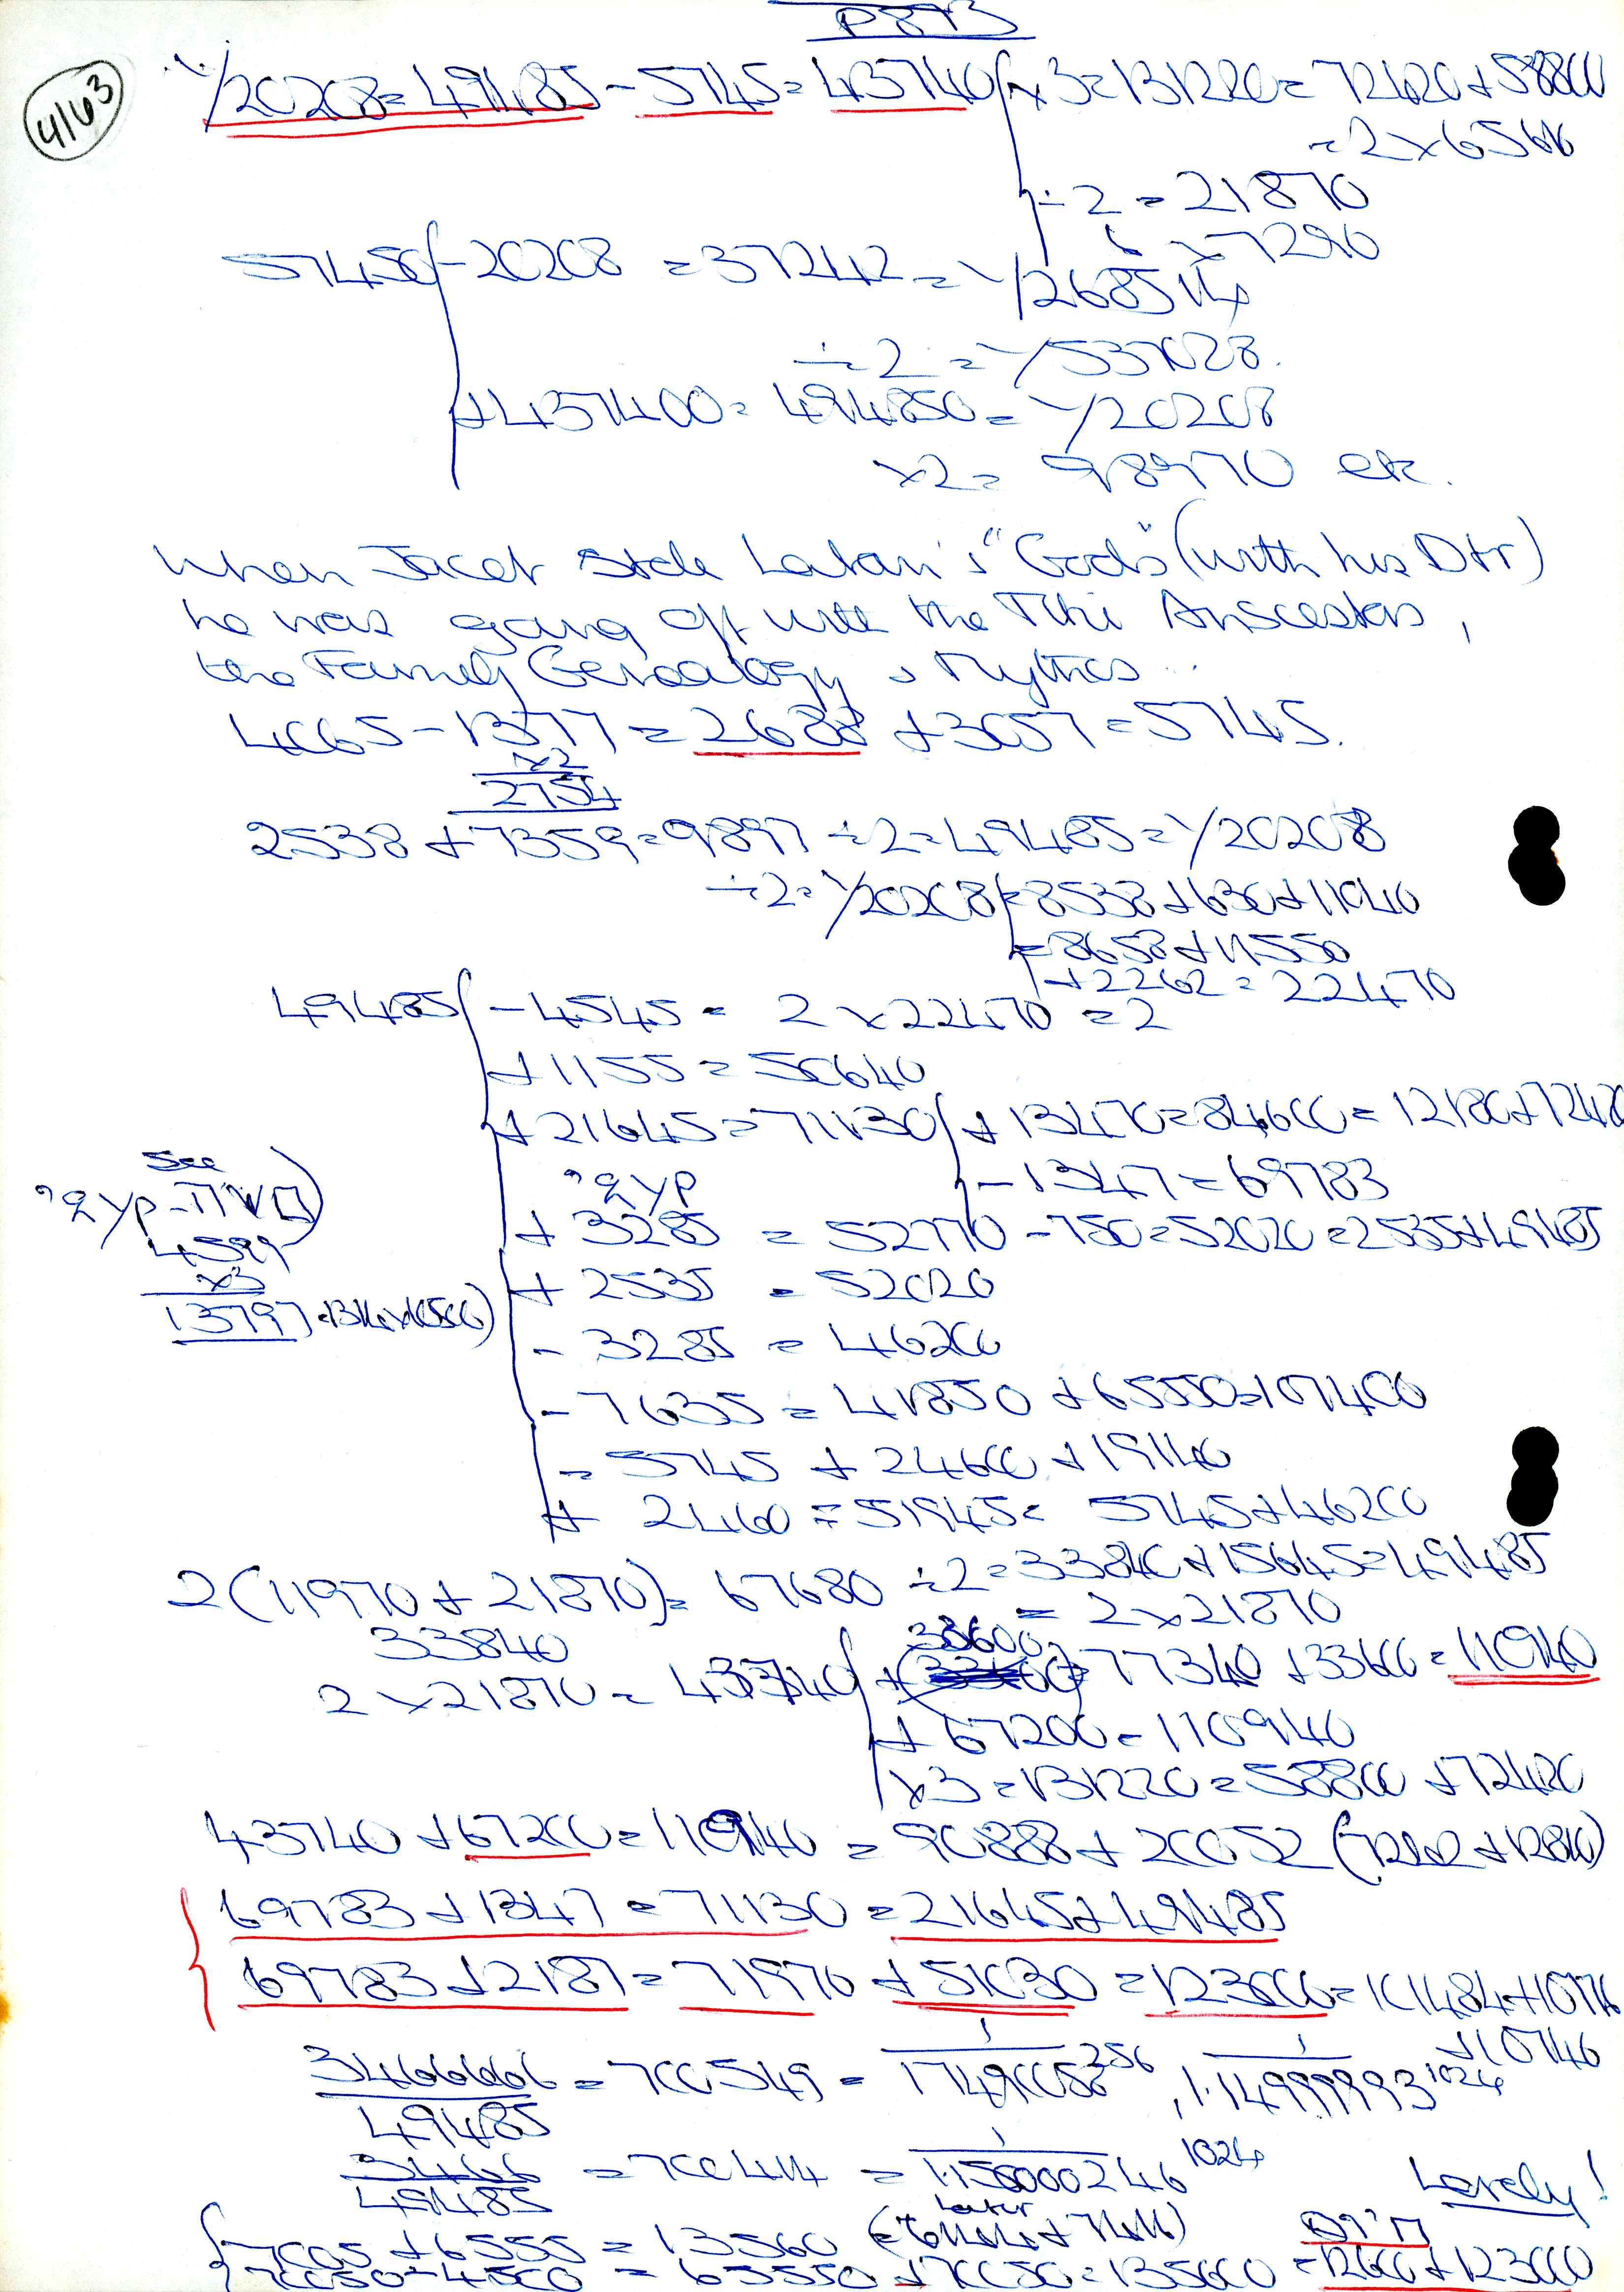 P893
4163
1/20208 = 49485 - 5745 = 43740 × 3 = 131220 = 72420 + 58800
= 2 × 65610
÷ 2 = 21870
6 = 7290
57450 - 20208 = 37242 = 1/268514
÷ 2 = 1/537028
+ 437400 = 494850 = 1/20208
×2 = 98970 etc.
When Jacob stole Laban's "Gods" (with his Dtr)
he was going off with the Tiki Anscestors,
the Family Genealogy & Mythos ..
4065 - 1377 = 2688 + 3057 = 5745.
×2
2754
2538 + 7359 = 9897 ÷ 2 = 49485 = 1/20208
÷ 2 = 1/20208 = 8538 + 630 + 11040
= 8658 + 11550
+ 2262 = 22470
49485 - 4545 = 2 × 22470 = 2
+ 1155 = 50640
+ 21645 = 71130 + 13470 = 84600 = 12180 + 72420
- 1347 = 69783
See
4599
×3
13797
+ 3285 = 52770 - 750 = 52020 = 2535 + 49485
+ 2535 = 52020
- 3285 = 46200
- 7635 = 41850 + 65550 = 107400
= 5745 + 24600 + 19140
+ 2460 = 51945 = 5745 + 46200
2(11970 + 21870) = 67680 ÷ 2 = 33840 + 15645 = 49485
33840
= 2 × 21870
33600
2 × 21870 = 43740 + 77340 + 33600 = 110940
+ 67200 = 110940
×3 = 131220 = 58800 + 72420
43740 + 67200 = 110940 = 90888 + 20052
69783 + 1347 = 71130 = 21645 + 49485
69783 + 2187 = 71970 + 51030 = 123000 = 101484 + 10776
+ 10746
3466666 = 700549 = 1
49485
17490058 256, 1.14999993 1024
3466 = 700414 = 1
49485
1.150000246 1024
Lovely!
7005 + 6555 = 13560
70050 - 4500 = 65550 + 70050 = 135600 = 12600 + 123000